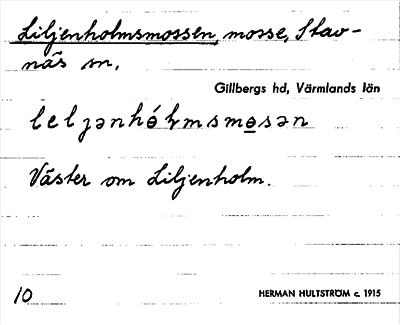 Liljenholmsmossen, mosse, Stav-
näs sn.
Gillbergs hd, Värmlands län
Väster om Liljenholm.
10
HERMAN HULTSTRÖM c. 1915